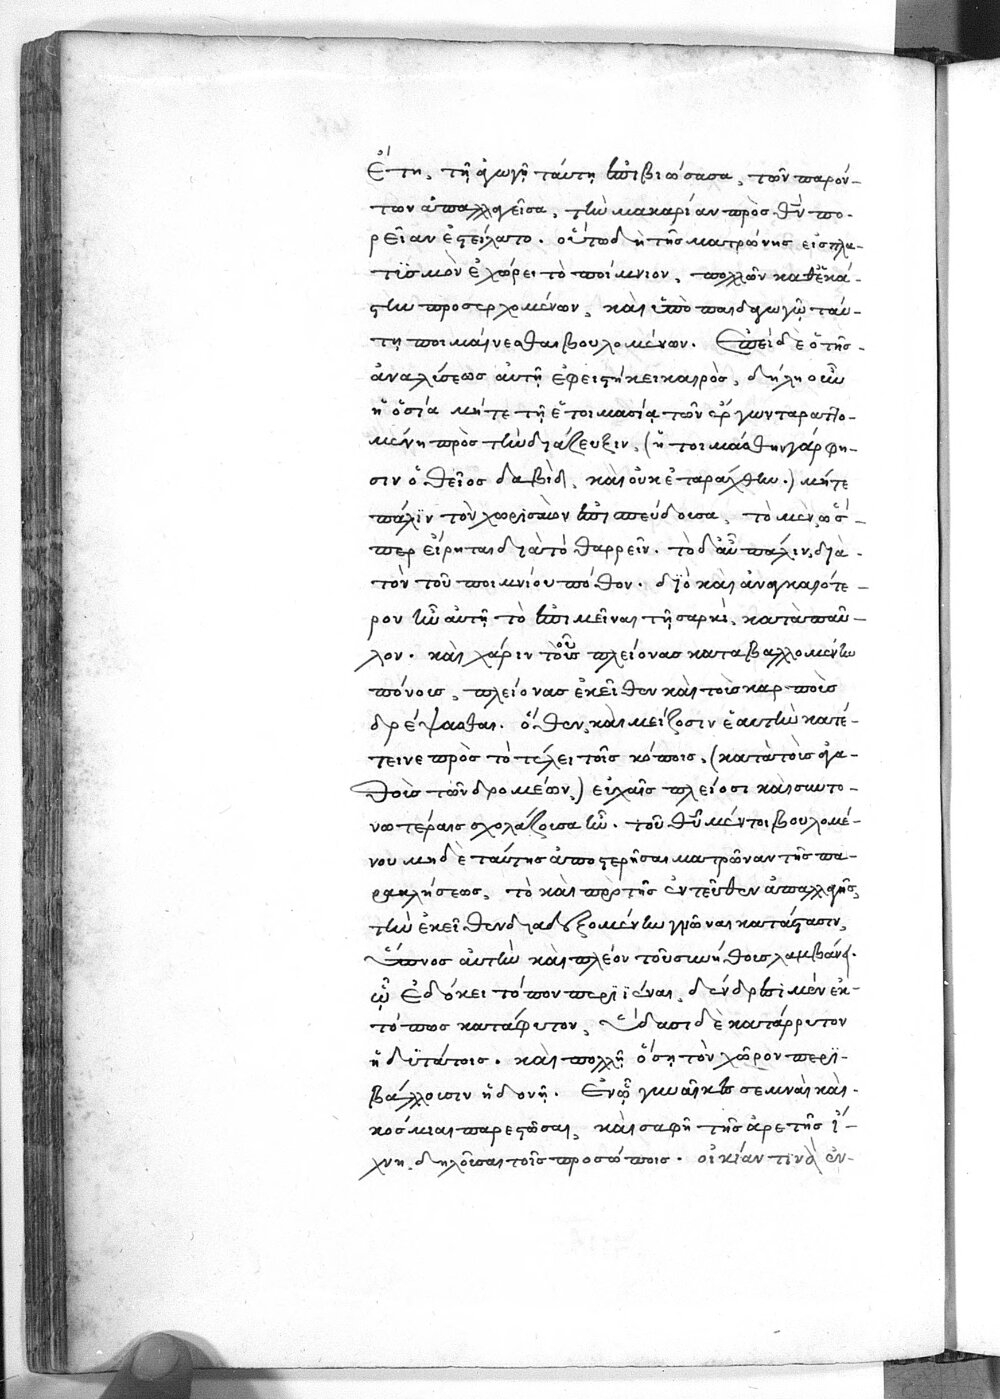 ἔτη, τῇ ἀγωγῇ ταύτῃ ἐπιβιώσασα, τῶν παρόν-
των ἀπαλλαγεῖσα, τὴν μακαρίαν πρὸς θν πο-
ρείαν ἐστείλατο. οὕτω δὴ τῆς ματρώνης εἰς πλα-
τϊσμὸν ἐχώρει τὸ ποίμνιον, πολλῶν καθεκά-
στην προσερχομένων, καὶ ὑπὸ παιδαγωγῷ ταύ-
τῃ ποιμαίνεσθαι βουλομένων. Ἐπεὶ δὲ ὁ τῆς
ἀναλύσεως αὐτῇ ἐφειστήκει καιρὸς, δήλη οὖν
ἡ ὁσία μήτε τῇ ἑτοιμασίᾳ τῶν ἔργων ταραττο-
μένη πρὸς τὴν διάζευξιν, (ἡτοιμάσθην γάρ φη-
σιν ὁ θεῖος δαβὶδ, καὶ οὐκ ἐταράχθην.) μήτε
πάλϊν τὸν χωρισμὸν ἐπισπεύδουσα, τὸ μὲν ὥσ-
περ εἴρηται διὰ τὸ θαρρεῖν. τὸ δ' αὖ πάλιν, διὰ
τὸν τοῦ ποιμνίου πόθον. διὸ καὶ ἀναγκαιότε-
ρον ἦν αὐτῇ τὸ ἐπιμεῖναι τῇ σαρκί, κατὰ παῦ-
λον. καὶ χάριν τοῦ τοὺς πλείονας καταβαλλομένην
πόνους, πλείονας ἐκεῖθεν καὶ τοὺς καρποὺς
δρέψασθαι. ὅθεν, καὶ μείζοσιν ἑαυτὴν κατέ-
τεινε πρὸς τὸ τέλει τοῖς κόποις, (κατὰ τοὺς ἀγα-
θοὺς τῶν δρομέων,) εὐχαῖς πλείοσι καὶ συντο-
νωτέραις σχολάζουσα ἦν. τοῦ θυ μέντοι βουλομέ-
νου μηδὲ ταύτης ἀποστερῆσαι ματρῶναν τῆς πα-
ρακλήσεως, τὸ καὶ πρὸ τῆς ἐντεῦθεν ἀπαλλαγῆς,
τὴν ἐκεῖθεν διαδεξομένην γνῶναι κατάστασιν,
ὕπνος αὐτὴν καὶ πλέον τοῦ συνήθους λαμβάνει.
ᾧ ἐδόκει τόπον περιϊέναι, δένδρεσι μὲν ἐκ-
τόπως κατάφυτον, ὕδασι δὲ κατάρρυτον
ἡδυτάτοις. καὶ πολλῇ ὅσῃ τὸν χῶρον περϊ-
βάλλουσιν ἡδονῇ. Ἐν ᾧ γυναῖκες σεμναὶ καὶ
κοσμίαι παρεστῶσαι, καὶ σαφῆ τῆς ἀρετῆς ἴ-
χνη, δηλοῦσαι τοῖς προσώποις. οἰκίαν τινὰ ἐν-